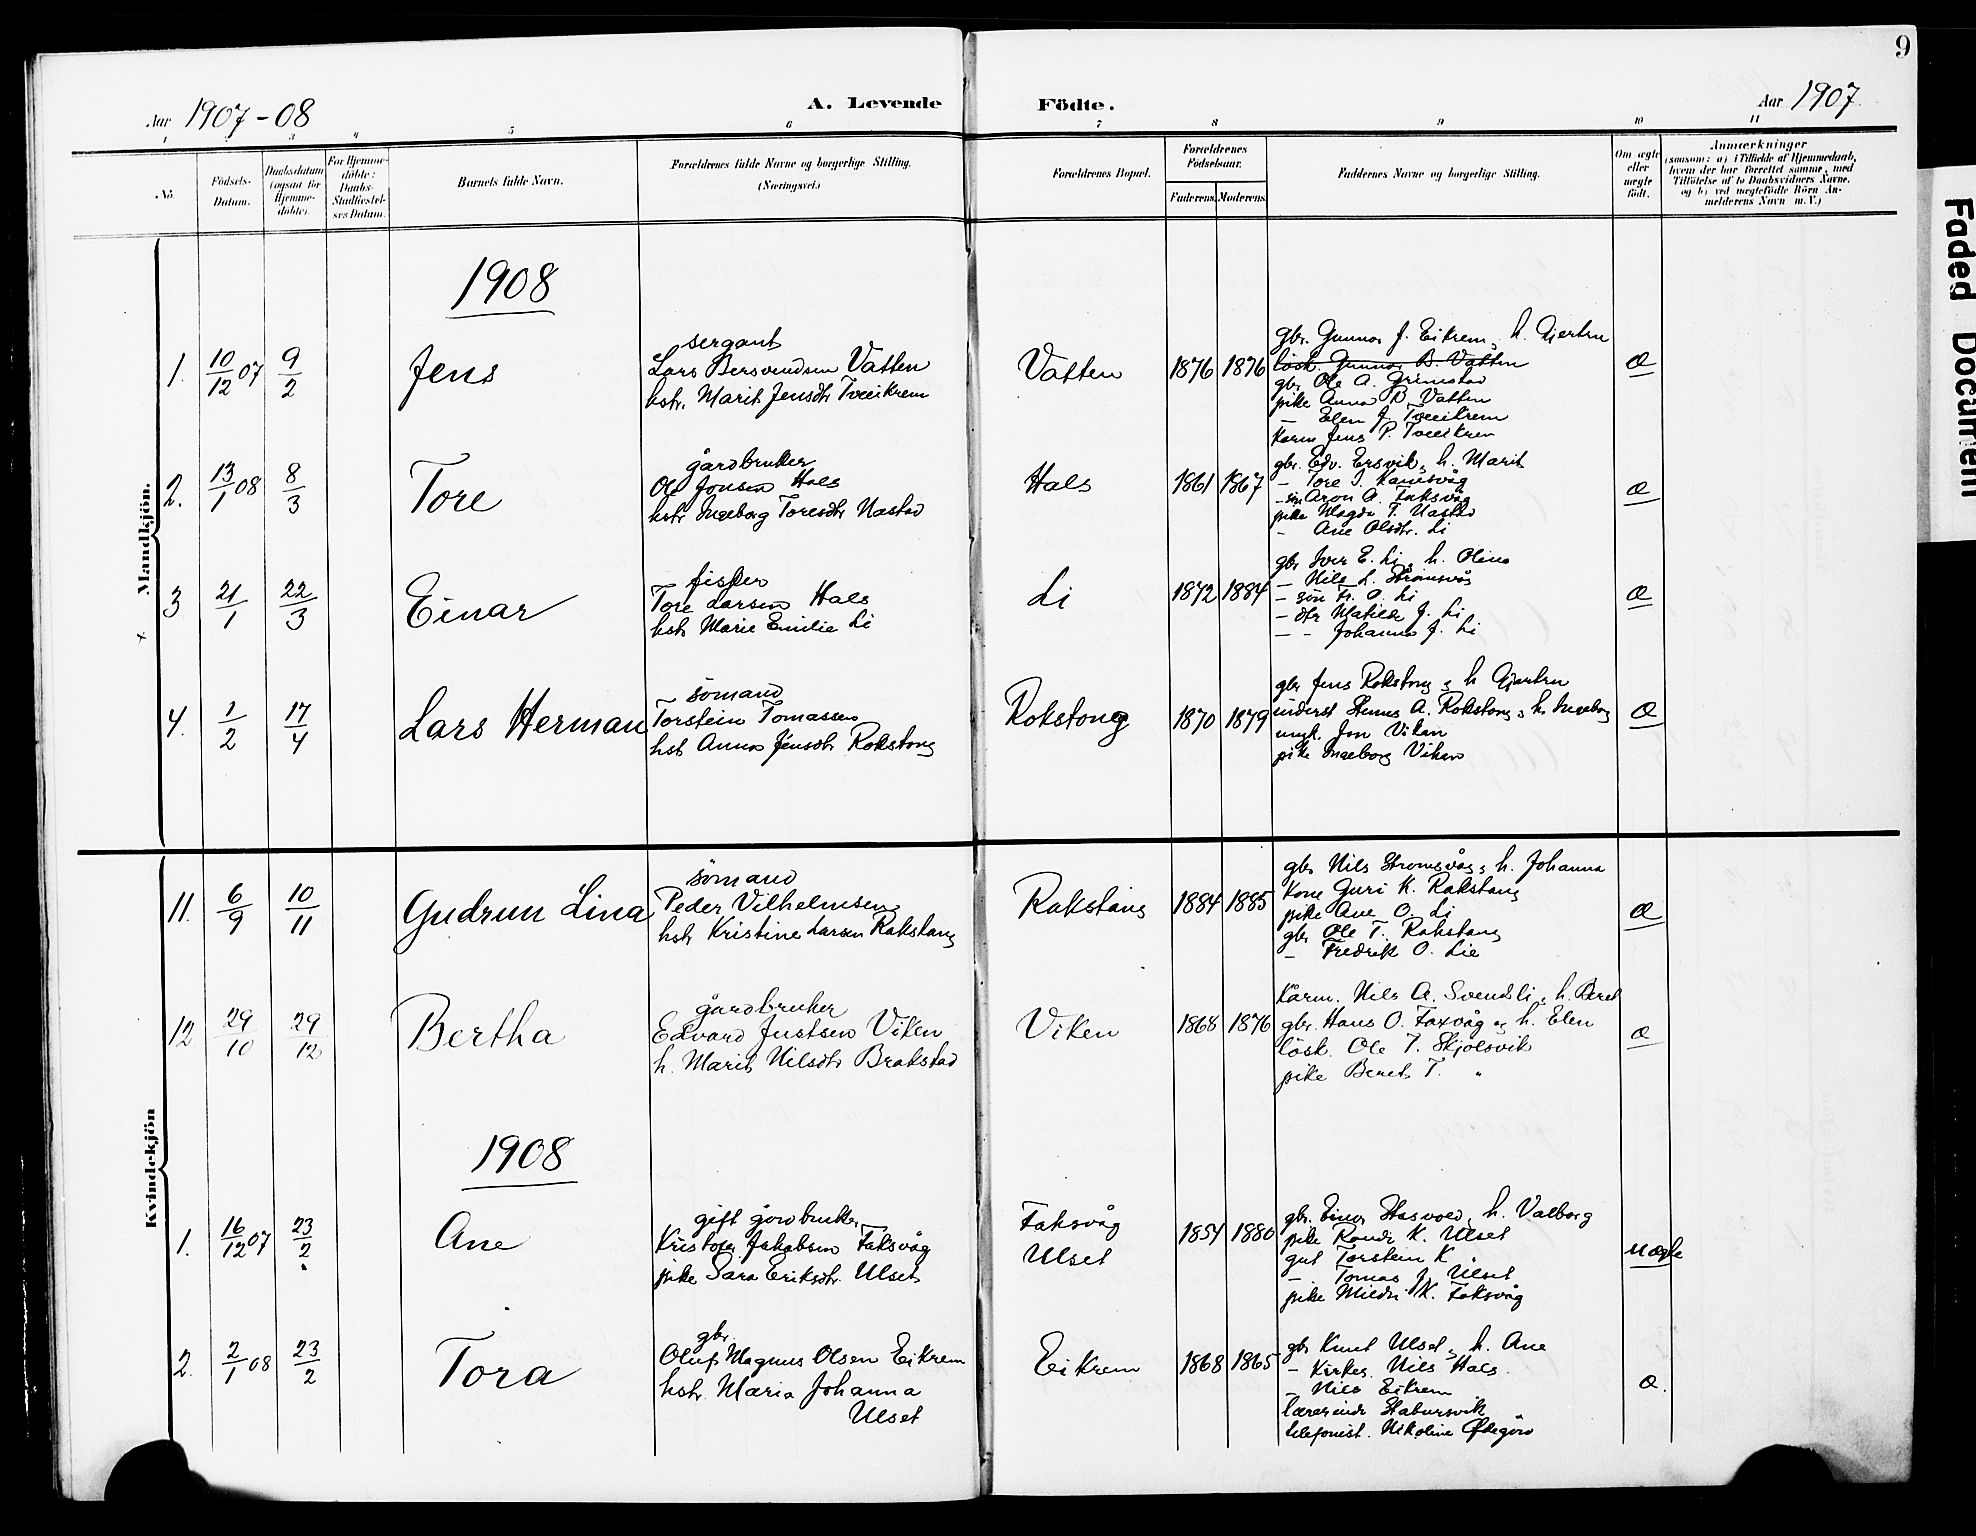 9
Aar 1907-08
A. Levende Födte.
Aar 1907
1 2 3 4 5 6 7 8 9 10 11
No.
Födsels-Datum.
Daabsdatum (ogsaa for Hjemme-döbte).
For Hjemme-döbte: Daabs-Stadfæstel-ses Datum.
Barnets fulde Navn.
Forældrenes fulde Navne og borgerlige Stilling.
(Næringsvei.)
Forældrenes Bopæl.
Forældrenes Födselsaar.
Faderens. Moderens.
Faddernes Navne og borgerlige Stilling.
Om ægte eller uægte födt.
Anmærkninger
(saasom: a) i Tilfælde af Hjemmedaab, hvem der har forrettet samme, med Tilföielse af to Daabsvidners Navne, og b) ved uægtefödte Börn An-melderens Navn m. V.)
Mandkjön.
1908
1. 10/12 07 9/2 Jens
sergant
Lars Bersvendsen Vatten
hstr. Marit Jensdtr Tveeikrem
Vatten 1876 1876
gbr. Gunnar J. Eikrem, h. Gjertru
lösk. Gunnar B. Vatten
gbr Ole A. Grimstad
pike Anna B. Vatten
— Elen J. Tveeikrem
Kårm Jens P. Tveeikrem
æ
2. 13/1 08 8/3 Tore
gårdbruker
Ole Jonsen Hals
hstr Ingeborg Toresdtr Nastad
Hals 1861 1867
gbr. Edv. Ersvik, h. Marit
— Tore J. Kanesvåg
- sön Aron A. Faksvåg
pike Magda T. Nastad
- Ane Olsdtr. Li
æ
3 21/1 22/3 Einar
fisker
Tore Larsen Hals
hstr Marie Emilie Li
Li 1872 1884
gbr Iver E. Li, h. Olina
— Nils L. Strömsvåg
— sön Fr. O. Li
— dtr Matilde J. Li
— - Johanna J. Li
æ
4. 1/2 17/4 Lars Herman
sömand
Torstein Tomassen
hst Anna Jensdtr Rokstong
Rokstong 1870 1879
gbr Jens Rokstong, h Gjertru
inderst Hennes A. Rokstong, h. Ingeborg
ungk. Jon Viken
pike Ingeborg Viken
æ
Kvindekjön
11. 6/9 10/11 Gudrun Lina
sömand
Peder Vilhelmsen
hstr Kristine Larsen Rakstang
Rakstang 1884 1885
gbr Nils Stromsvåg, h. Johanna
Kone Guri K. Rakstang
pike Ane O. Li
gbr Ole T. Rakstang
— Fredrik O. Lie
æ
12 29/10 29/12 Bertha
gårdbruker
Edvard Justsen Viken
h. Marit Nilsdtr Brakstad
Viken 1868 1876
Kårm. Nils A. Svendsli, h. Beret
gbr. Hans O. Faxvåg og h. Elen
lösk. Ole T. Skjölsvik
pike Beret T. "
æ
1908
1. 16/12 07 23/2 Ane
gift gårdbruker
Kristofer Jakobsen Faksvåg
pike Sara Eriksdtr. Ulset
Faksvåg
Ulset
1854 1880
gbr. Einar Hasvold, h. Valborg
pike Randi K. Ulset
gut Torstein K "
— Tomas J. Ulset
pike Mildri K. Faksvåg
uægte
2. 2/1 08 23/2 Tora
gbr.
Oluf Magnus Olsen Eikrem
hstr. Maria Johanna
Ulset
Eikrem 1868 1865
gbr Knut Ulset, h. Ane
— Kirkes. Nils Hals
— Nils Eikrem
lærerinde Stabursvik
telefonist. Nikoline Ödegård
æ.
Faded Document